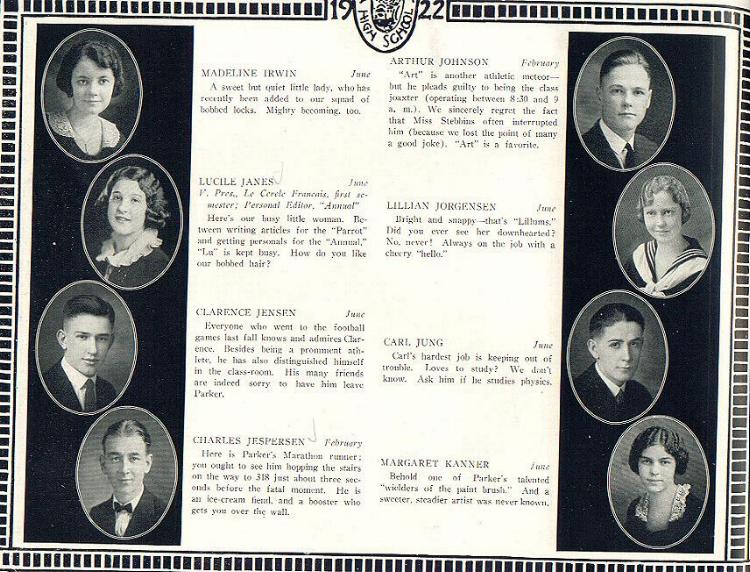 19 22
HIGH SCHOOL
MADELINE IRWIN June
A sweet but quiet little lady, who has
recently been added to our squad of
bobbed locks. Mighty becoming, too.
LUCILE JANES June
V. Pres., Le Cercle Francais, first se-
mester; Personal Editor, "Annual"
Here's our busy little woman. Be-
tween writing articles for the "Parrot"
and getting personals for the "Annual,"
"Lu" is kept busy. How do you like
our bobbed hair?
CLARENCE JENSEN June
Everyone who went to the football
games last fall knows and admires Clar-
ence. Besides being a prominent ath-
lete, he has also distinguished himself
in the class-room. His many friends
are indeed sorry to have him leave
Parker.
CHARLES JESPERSEN February
Here is Parker's Marathon runner;
you ought to see him hopping the stairs
on the way to 318 just about three sec-
onds before the fatal moment. He is
an ice-cream fiend, and a booster who
gets you over the wall.
ARTHUR JOHNSON February
"Art" is another athletic meteor—
but he pleads guilty to being the class
joaxter (operating between 8:30 and 9
a. m.). We sincerely regret the fact
that Miss Stebbins often interrupted
him (because we lost the point of many
a good joke). "Art" is a favorite.
LILLIAN JORGENSEN June
Bright and snappy—that's "Lillums."
Did you ever see her downhearted?
No, never! Always on the job with a
cheery "hello."
CARL JUNG June
Carl's hardest job is keeping out of
trouble. Loves to study? We don't
know. Ask him if he studies physics.
MARGARET KANNER June
Behold one of Parker's talented
"wielders of the paint brush." And a
sweeter, steadier artist was never known.